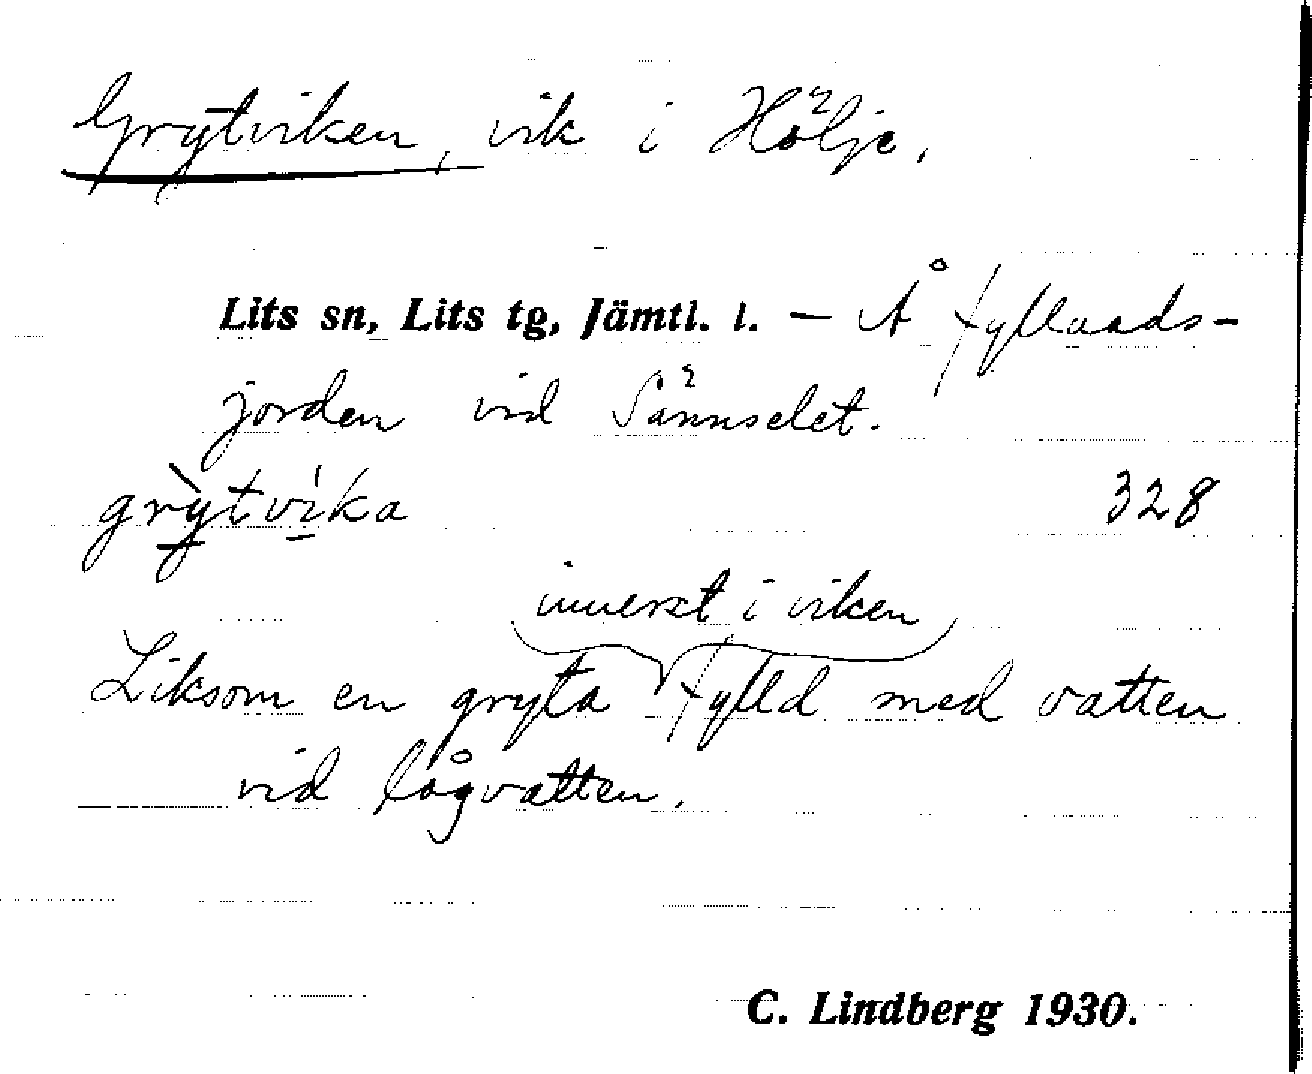 Grytviken, vik i Hölje.
Lits sn, Lits tg, Jämtl. l. — Å Fyllands-
jorden vid Sännselet.
grỳtvíka 328
innerst i viken
Liksom en gryta fylld med vatten
vid lågvatten.
C. Lindberg 1930.